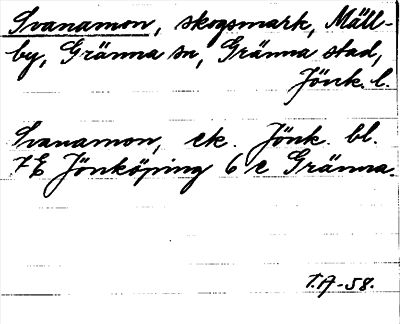 Svanamon, skogsmark, Mäll-
by, Gränna sn, Gränna stad,
Jönk. l.
Svanamon, ek. Jönk. bl.
7E Jönköping 6 c Gränna.
T.A-58.